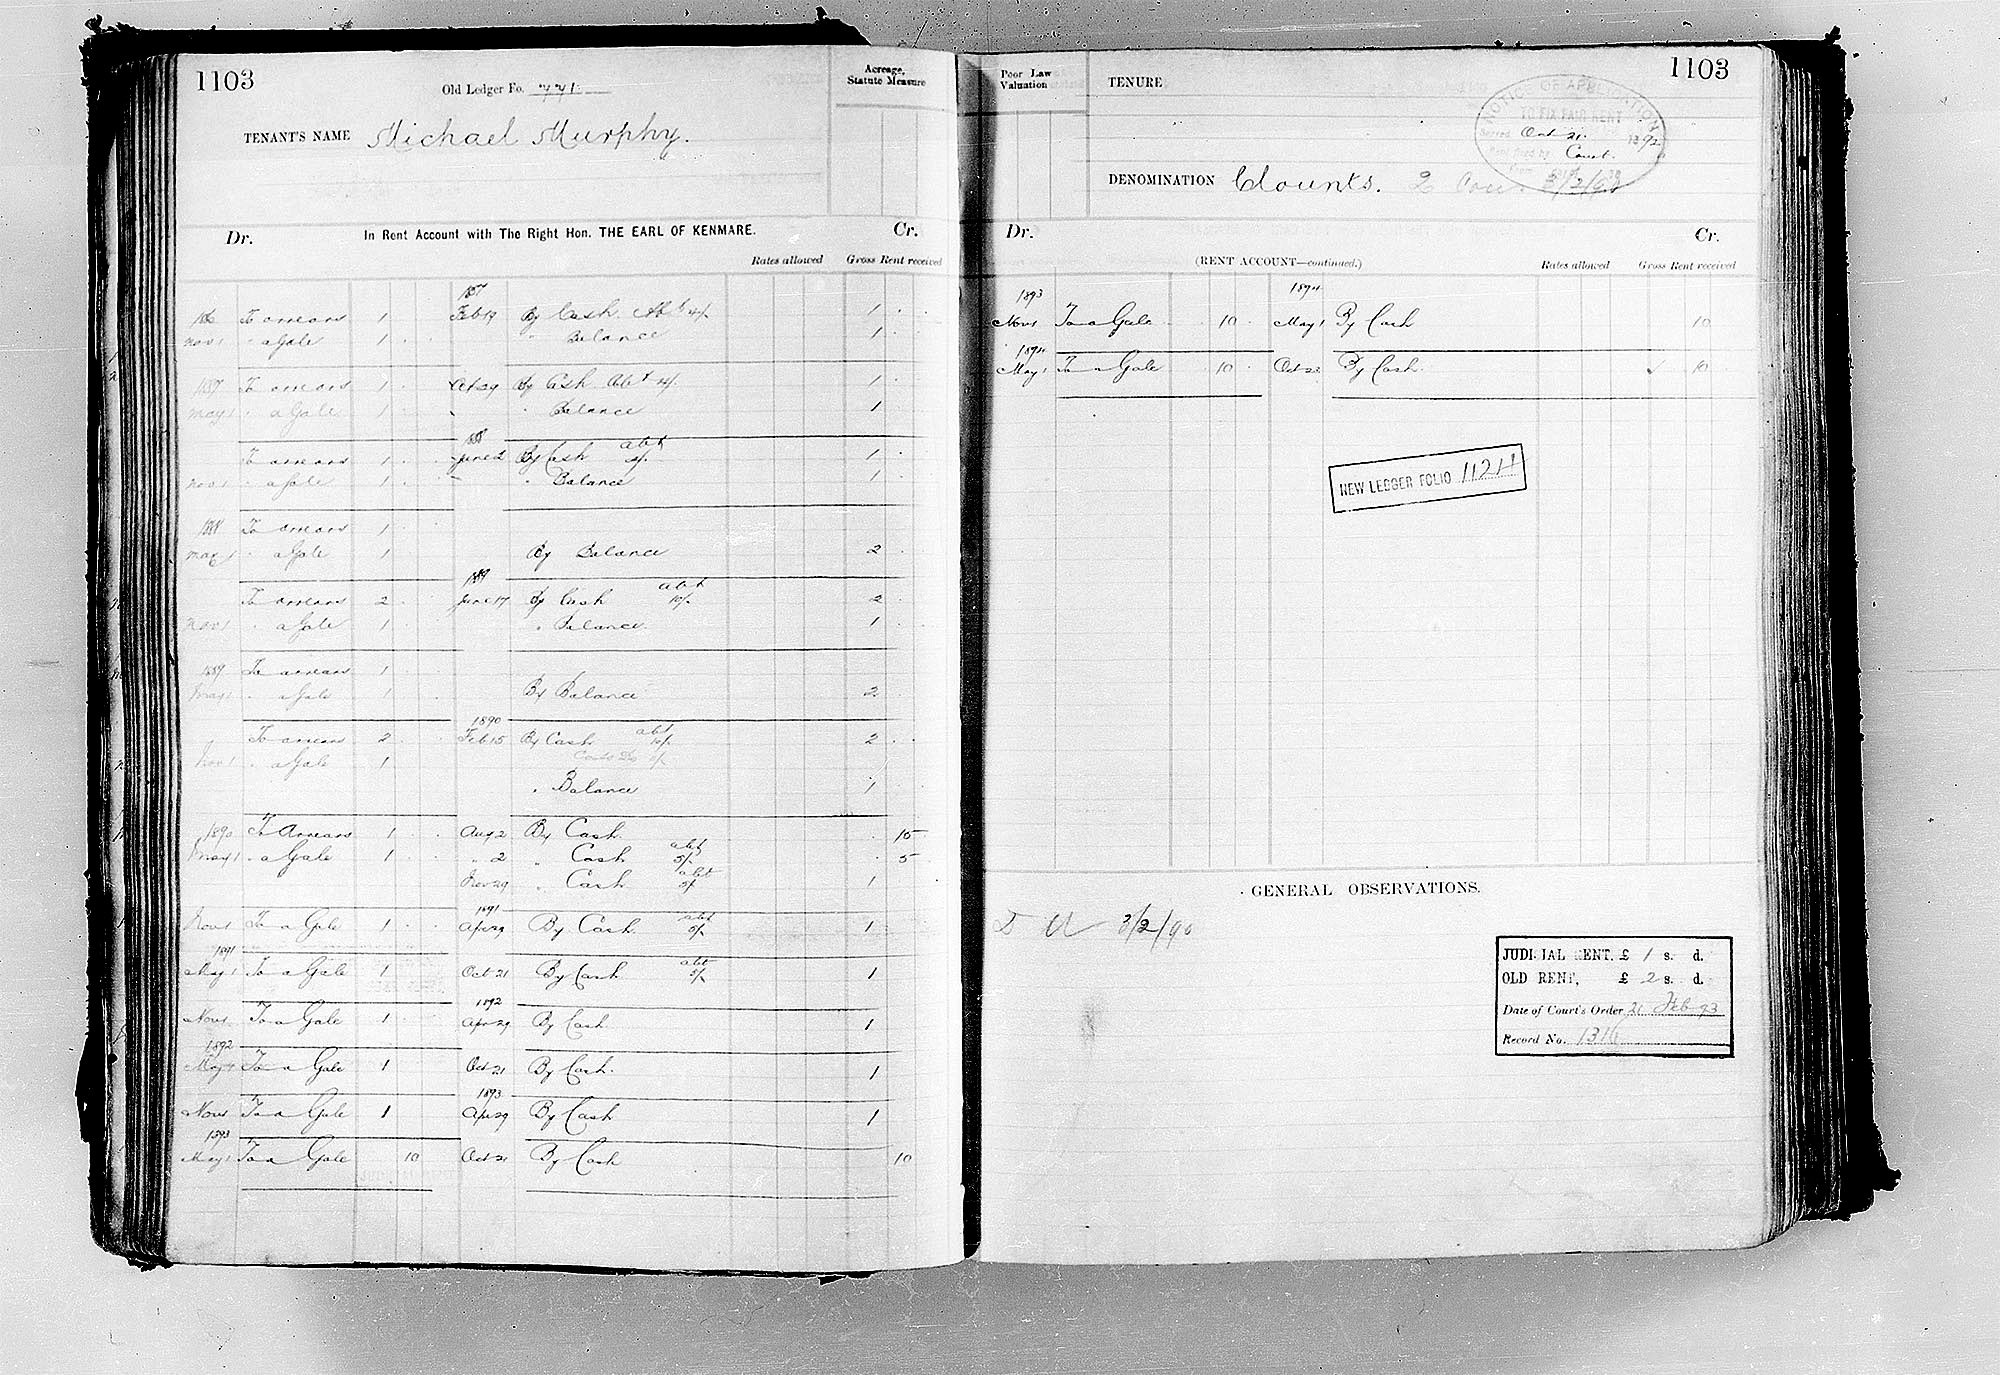 1103
Old Ledger Fo. 771
Acreage, Statute Measure
TENANT'S NAME Michael Murphy.
Dr. In Rent Account with The Right Hon. THE EARL OF KENMARE. Cr.
Rates allowed Gross Rent received
1887
To arrears 1 Feb 19 By Cash Abt 4/. 1
Nov 1 " a Gale 1 " Balance 1
1887 To arrears 1 Oct 29 By Cash Abt 4/. 1
May 1 " a Gale 1 " Balance 1
1888 abt
To arrears 1 June 2 By Cash 1
Nov 1 " a Gale 1 " Balance 1
1888 To arrears 1
May 1 " a Gale 1 By Balance 2
1889 abt
To arrears 2 June 17 By Cash 10/. 2
Nov 1 " a Gale 1 " Balance 1
1889 To arrears 1
May 1 " a Gale 1 By Balance 2
1890 abt
To arrears 2 Feb 15 By Cash 10/. 2
Nov 1 " a Gale 1
" Balance 1
1890 To Arrears 1 Aug 2 By Cash 15
May 1 " a Gale 1 " 2 " Cash abt 5/. 5
Nov 29 " Cash abt 5/. 1
1891
Nov 1 To a Gale 1 Apr 29 By Cash abt 5/. 1
1891
May 1 To a Gale 1 Oct 21 By Cash abt 5/. 1
1892
Nov 1 To a Gale 1 Apr 29 By Cash 1
1892
May 1 To a Gale 1 Oct 21 By Cash. 1
1893
Nov 1 To a Gale 1 Apr 29 By Cash 1
1893
May 1 To a Gale 10 Oct 21 By Cash 10
1103
Poor Law Valuation
TENURE
NOTICE OF APPLICATION
TO FIX FAIR RENT
Served Oct 21. 1892
Court.
DENOMINATION Clounts.
Dr. Cr.
(RENT ACCOUNT—continued.)
Rates allowed Gross Rent received
1893 1894
Nov 1 To a Gale 10 May 1 By Cash 10
1894
May 1 To a Gale 10 Oct 23 By Cash. ✓ 10
NEW LEDGER FOLIO
GENERAL OBSERVATIONS.
3/2/90
JUDICIAL RENT, £ 1 s. d.
OLD RENT, £ 2 s. d.
Date of Court's Order 21 Feb 93
Record No. 1316